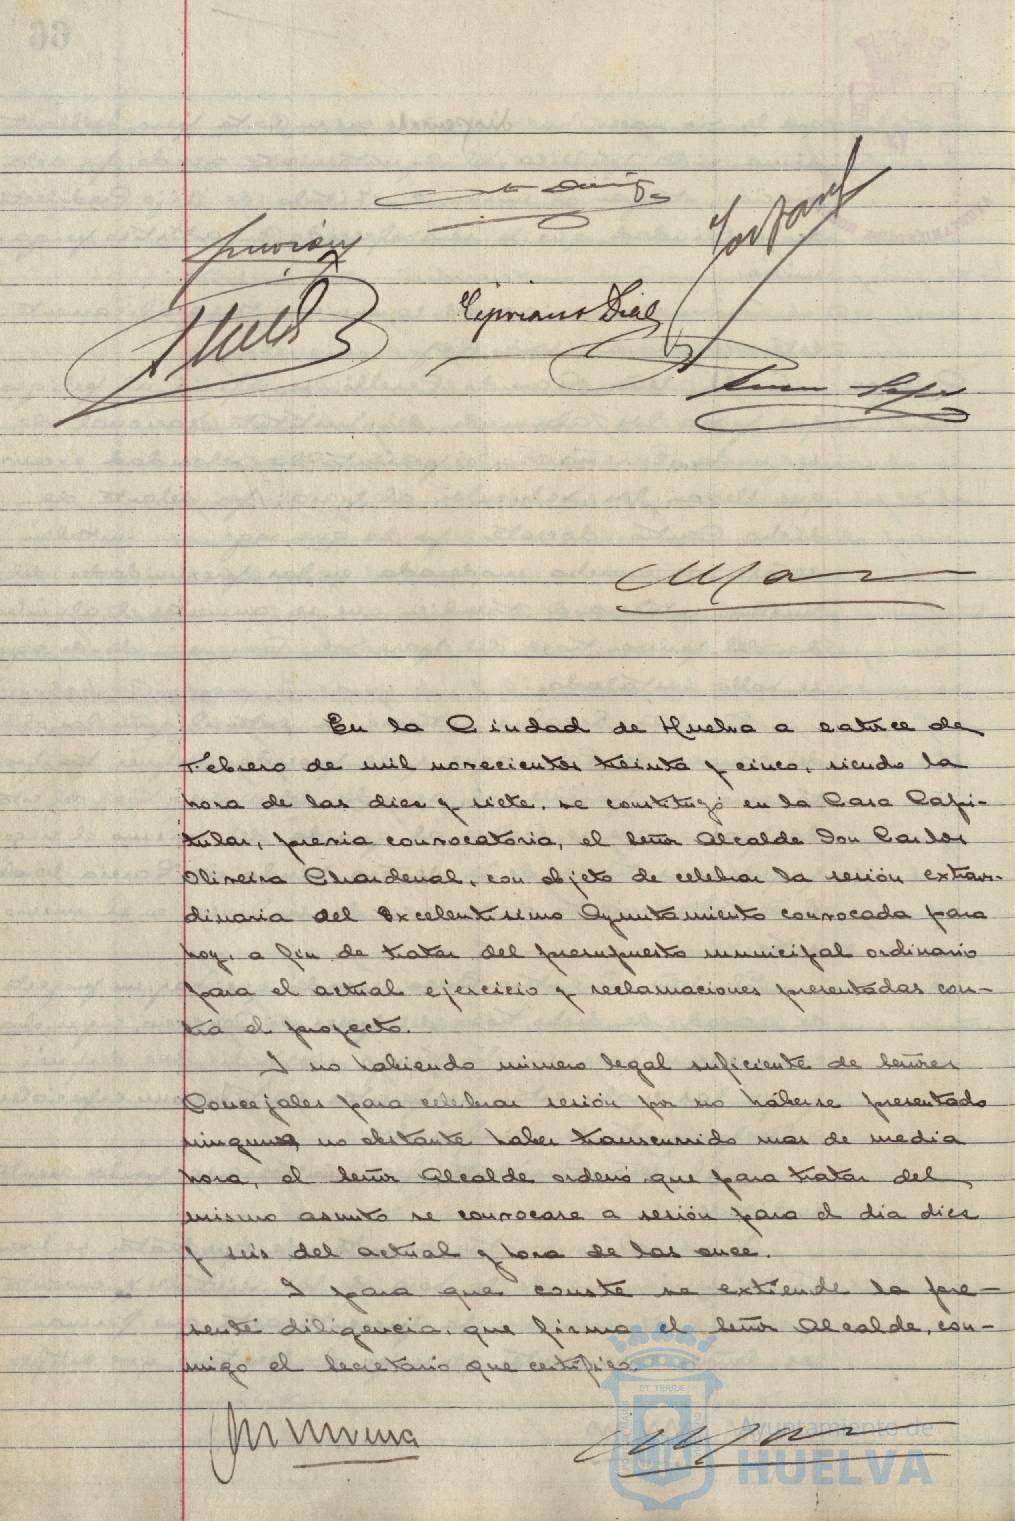 Cipriano Dial
En la Ciudad de Huelva a catorce de
Febrero de mil novecientos treinta y cinco, siendo la
hora de las diez y siete, se constituyó en la Casa Capi-
tular, previa convocatoria, el señor Alcalde Don Carlos
Oliveira Chardenal, con objeto de celebrar la sesión extraor-
dinaria del Excelentísimo Ayuntamiento convocada para
hoy, a fin de tratar del presupuesto municipal ordinario
para el actual ejercicio y reclamaciones presentadas con-
tra el proyecto.
Y no habiendo número legal suficiente de señores
Concejales para celebrar sesión por no háberse presentado
ninguno, no obstante haber transcurrido mas de media
hora, el señor Alcalde ordenó que para tratar del
mismo asunto se convocase a sesión para el día diez
y seis del actual y hora de las once.
Y para que conste se extiende la pre-
sente diligencia, que firma el señor Alcalde, con-
migo el Secretario que certifico.
Ayuntamiento de
HUELVA